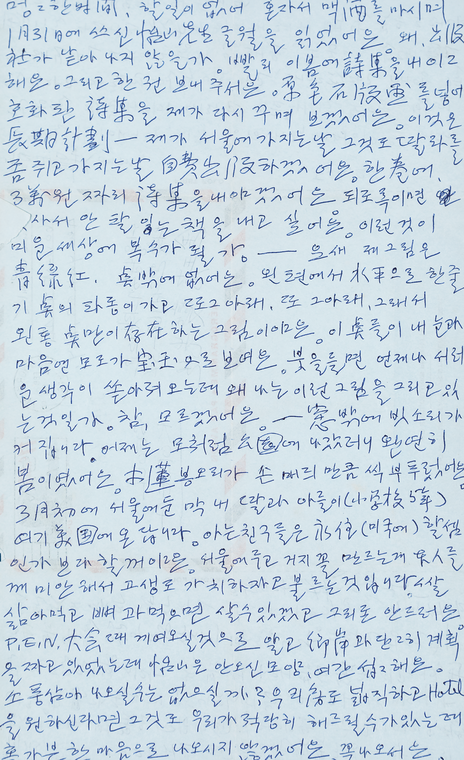 멍그한밤間, 할일이 없어 혼자서 맥酒를 마시며
1月31日에 쓰신 글월을 읽었어은. 왜, 出版
社가 낱아나지 않을가. 빨리 이봄에 詩集을 내이고
해은. 그리고 한권 보내주서은. 原色石版画를 넣어
호화판 詩集을 제가 다시 꾸며 보겠어은. 이것은
長期計劃 — 제가 서울에 가지는날 그것도 딸라를
좀 쥐고 가지는날 自費出版하겠어은. 한卷에.
3萬원 짜리 詩集을 내이겠어은 되로록이면
사서 안 팔 있는 책을 내고 싶어은. 이런것이
미운 세상에 복수가 될가. — 요새 제 그림은
青綠紅. 点밖에 없어은. 왼편에서 水平으로 한줄
기 点의 파동이 가고 또 그 아래. 또 그 아래. 그래서
왼통 点만이 存在하는 그림이이은. 이 点들이 내 눈과
마음엔 모로가 宝玉으로 보여은. 붓을들면 언제나 서러
운 생각이 쏟아져 오는데 왜 나는 이런 그림을 그리고 있
는 것일가. 참, 모르겠어은. — 窓밖에 빗소리가
커집니다. 어제는 모처럼 公園에 나갔더니 완연히
봄이였어은. 木蓮봉오리가 손 매듸 만큼 씩 부푸렀어은
3月초에 서울에 둔 막내 딸과 아들이(小學校 5年)
여기 美国에 온답니다. 아는친구들은 永住(미국에) 할셈
인가 보다 할꺼이은. 서울에 두고 거지꼴 만드는게 夫人들
께 미안해서 고생도 가치하자고 불르는것 입니다. 쌀
삶아먹고 빵과 먹으면 살수있겠고 그리로 안드러은
P.E.N. 大会때 게여오실것으로 알고 鄕岸과 단단히 계획
을 짜고 있었는데 안오신 모양, 여간 섭섭해은.
소풍삼아 나오실수는 없으실까은 우리房도 넓직하고 Hotel
을 원하신다면 그것도 우리가 적당히 해드릴수가 있는데
홋가분한 마음으로 나오시지 않겠어은. 꼭 나오서은.